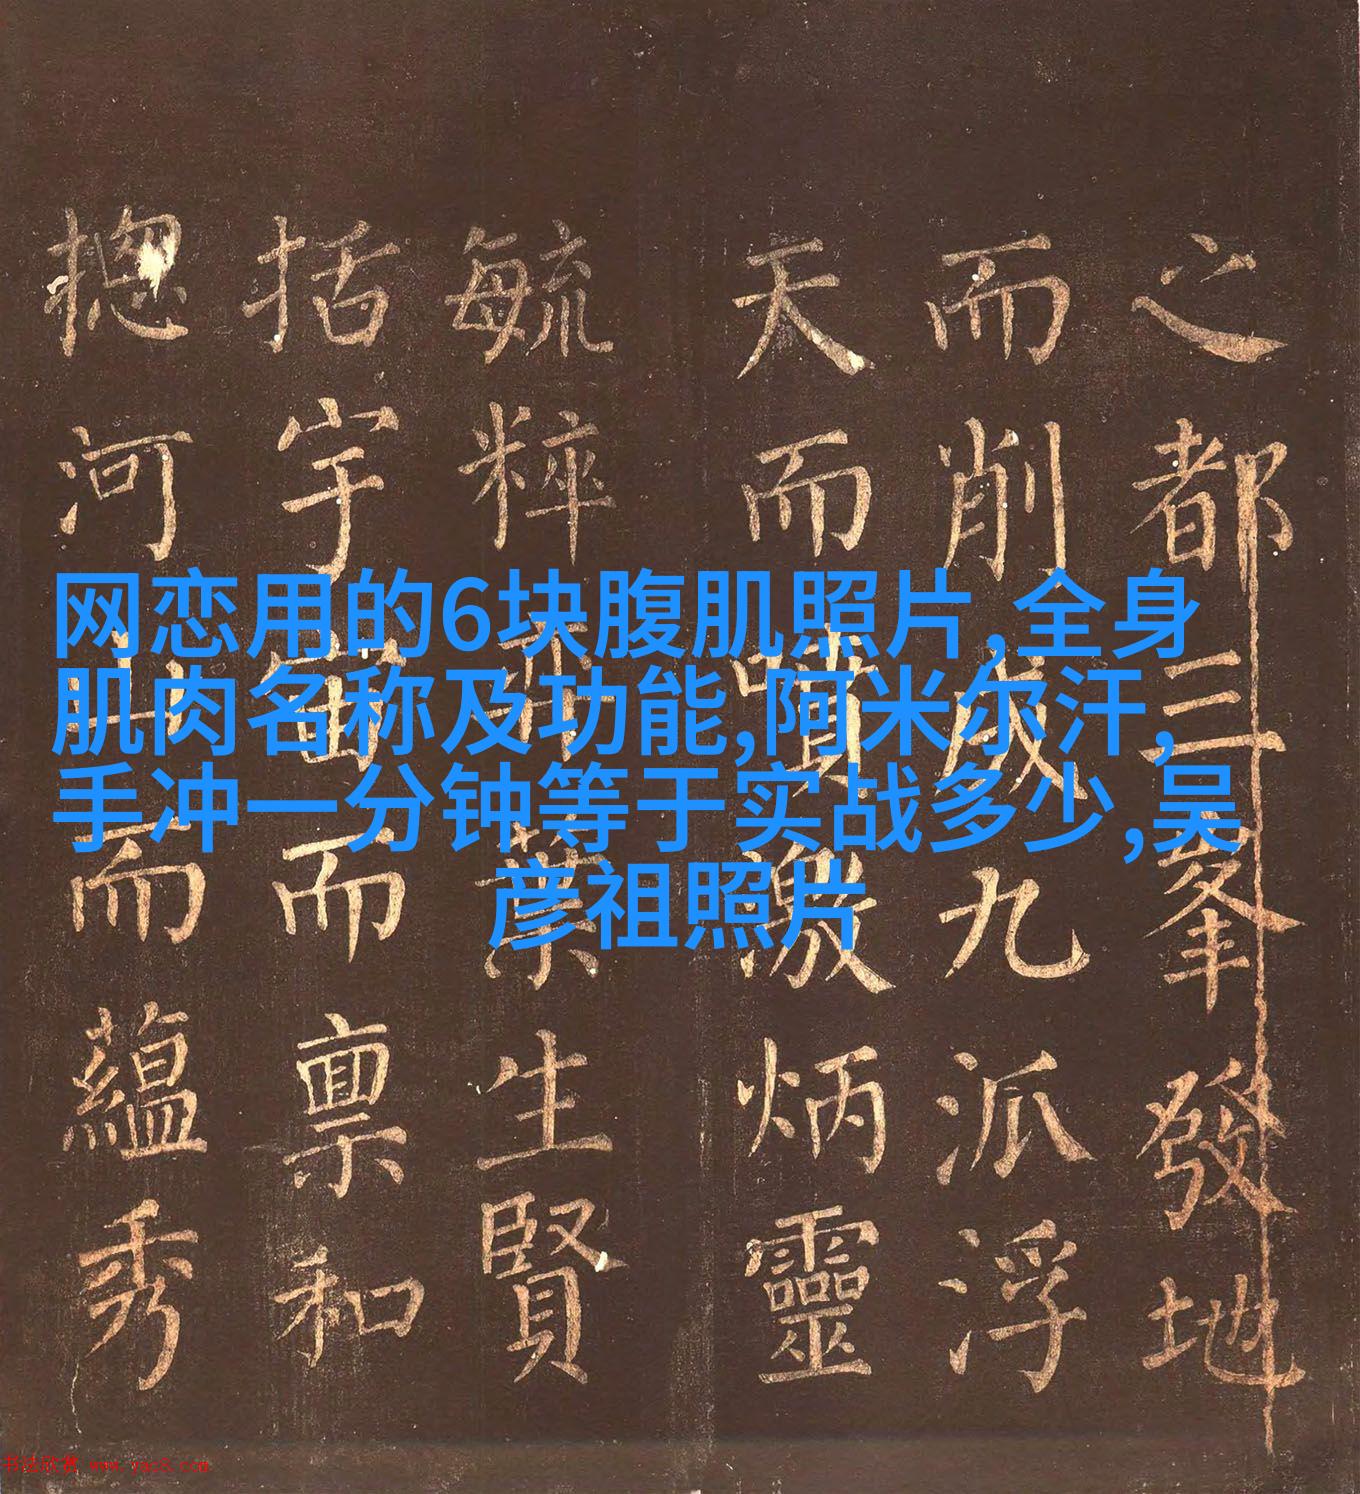 之都三峯發地
而削成九派浮
天而噴激炳靈
毓粹葉生賢
括宇宙而禀和
揔河山而藴秀
网恋用的6块腹肌照片,全身
肌肉名称及功能,阿米尔汗,
手冲一分钟等于实战多少,吴
彦祖照片
书法欣赏 www.yac8.com